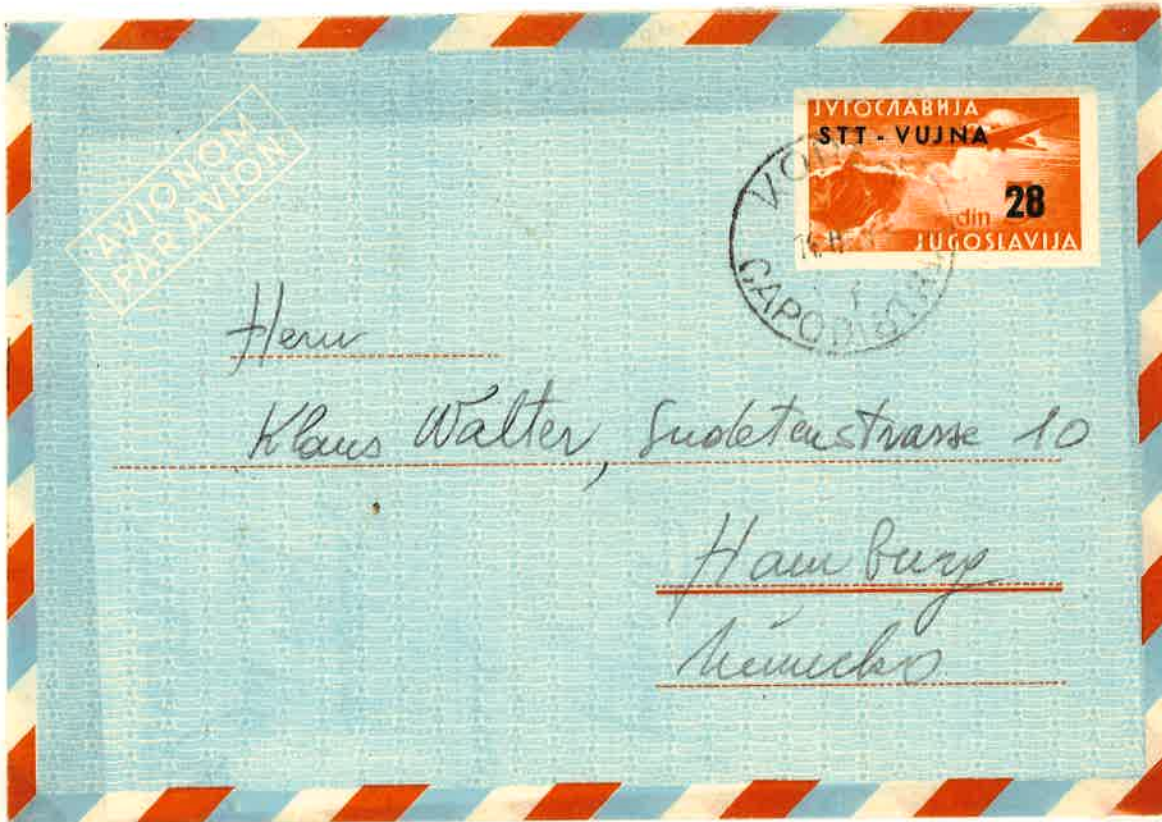 AVIONOM
PAR AVION
ЈУГОСЛАВИЈА
STT - VUJNA
din 28
JUGOSLAVIJA
CAPODISTRIA
Herrn
Klaus Walter, Sudetenstrasse 10
Hamburg
Německo